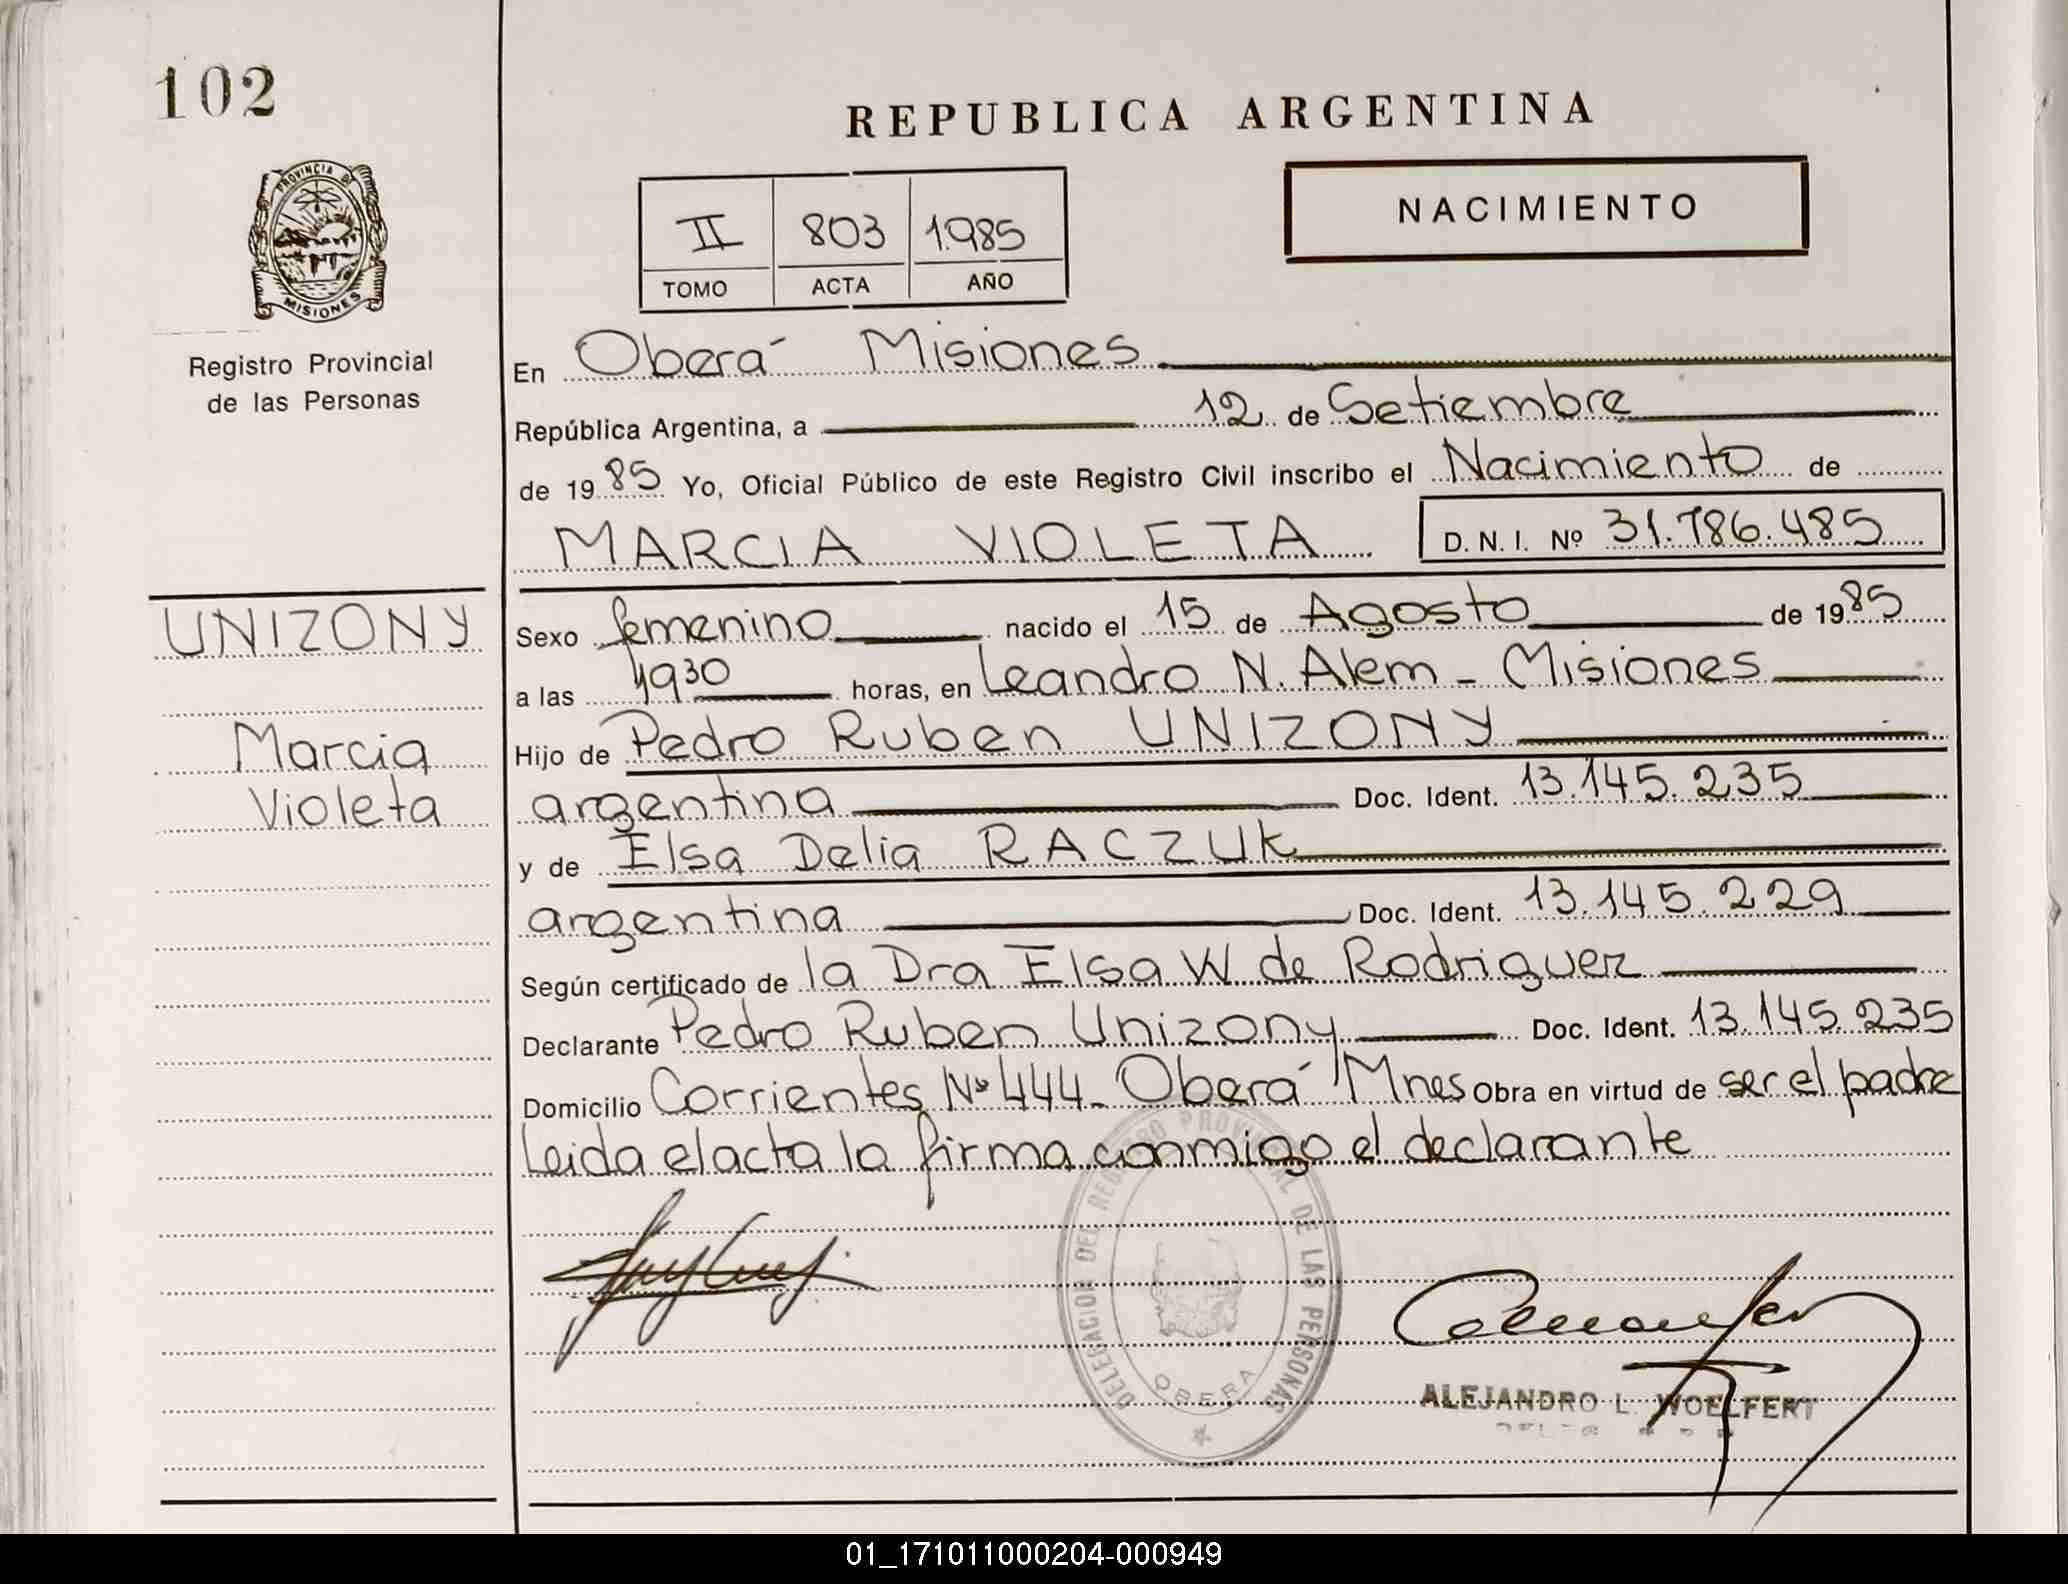 102
REPUBLICA ARGENTINA
PROVINCIA DE
MISIONES
II 803 1985
TOMO ACTA AÑO
NACIMIENTO
Registro Provincial
de las Personas
En Oberá Misiones
República Argentina, a 12 de Setiembre
de 1985 Yo, Oficial Público de este Registro Civil inscribo el Nacimiento de
MARCIA VIOLETA D. N. I. Nº 31.786.485
UNIZONY
Marcia
Violeta
Sexo femenino nacido el 15 de Agosto de 1985
a las 1930 horas, en Leandro N. Alem - Misiones
Hijo de Pedro Ruben UNIZONY
argentina Doc. Ident. 13.145.235
y de Elsa Delia RACZUK
argentina Doc. Ident. 13.145.229
Según certificado de la Dra Elsa W de Rodriguez
Declarante Pedro Ruben Unizony Doc. Ident. 13.145.235
Domicilio Corrientes Nº 444- Oberá Mnes Obra en virtud de ser el padre
Leida el acta la firma conmigo el declarante
DELEGACION DEL REGISTRO PROVINCIAL DE LAS PERSONAS
OBERA
ALEJANDRO L. WOELFERT
01_171011000204-000949